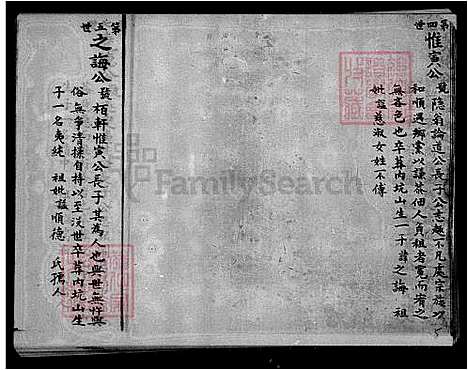 第四世
惟寅公
號隐翁論道公長子公志趣不凡處宗族以
和順遇鄉黨以謙恭佃人貞租者寬而宥之
無吝色也卒葬内坑山生一子諱之誨 祖
妣諡慈淑女姓不傳
第五世
之誨公
號栢軒惟寅公長子其為人也與世無忤與
俗無爭清操自持以至没世卒葬内坑山生
子一名夷純 祖妣諡順德 氏孺人
FamilySearch